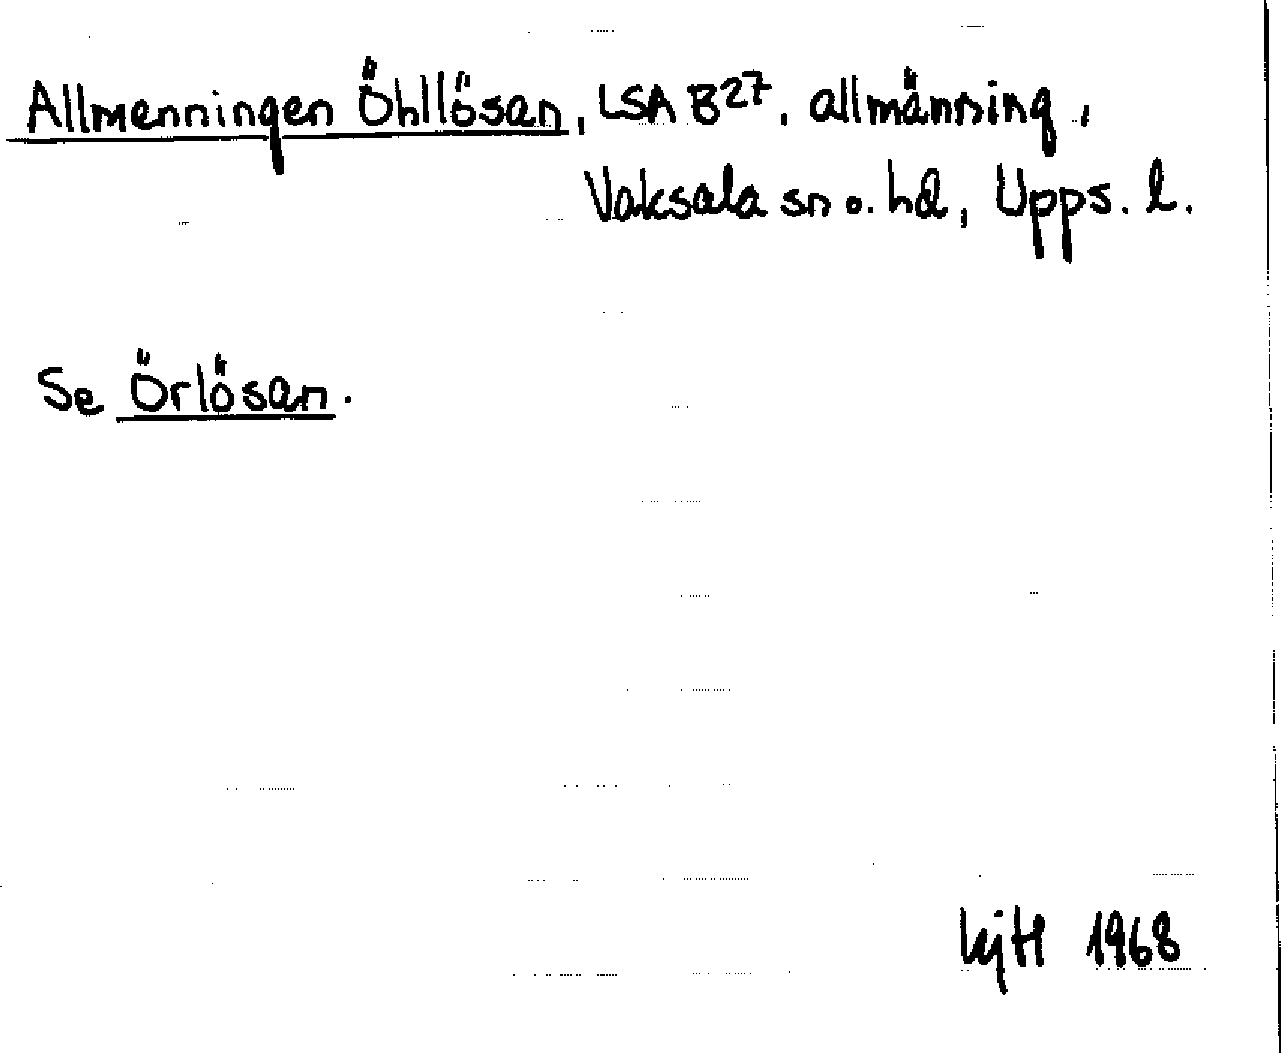 Allmenningen Öhllösan, LSA B27, allmänning,
Vaksala sn o. hd, Upps. l.
Se Örlösan.
1968